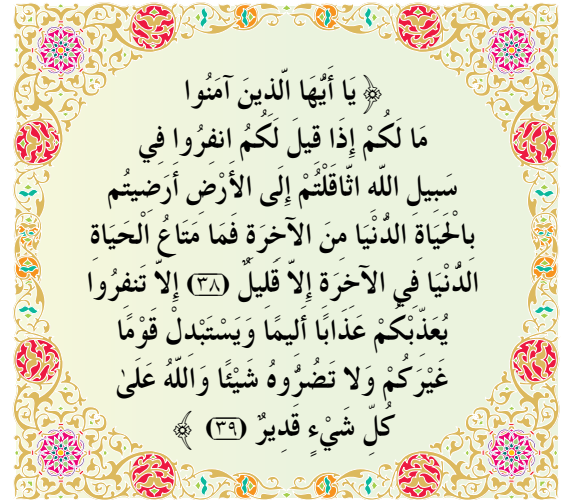 ﴿ يَا أَيُّهَا الّذينَ آمَنُوا
مَا لَكُمْ إِذَا قيلَ لَكُمُ انفِرُوا فِي
سَبيلِ اللّهِ اثّاقَلْتُمْ إِلَى الأَرْضِ أَرَضِيْتُم
بِالْحَيَاةِ الدُّنْيَا مِنَ الآخِرَةِ فَمَا مَتَاعُ الْحَيَاةِ
الدُّنْيَا فِي الآخِرَةِ إِلاّ قَلِيلٌ (٣٨) إِلاّ تَنفِرُوا
يُعَذِّبْكُمْ عَذَابًا أَلِيمًا وَيَسْتَبْدِلْ قَوْمًا
غَيْرَكُمْ وَلا تَضُرُّوهُ شَيْئًا وَاللّهُ عَلَىٰ
كُلِّ شَيْءٍ قَدِيرٌ (٣٩) ﴾